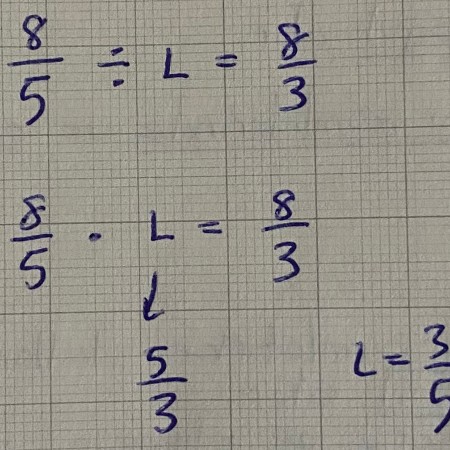 8/5 ÷ L = 8/3
8/5 · L = 8/3
↓
5/3
L = 3/5